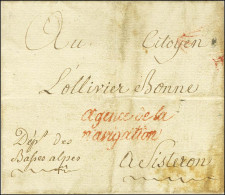 Au Citoyen
L'ollivier Bonne
Agence de la
navigation
Dépt des
Basses alpes
A Sisteron